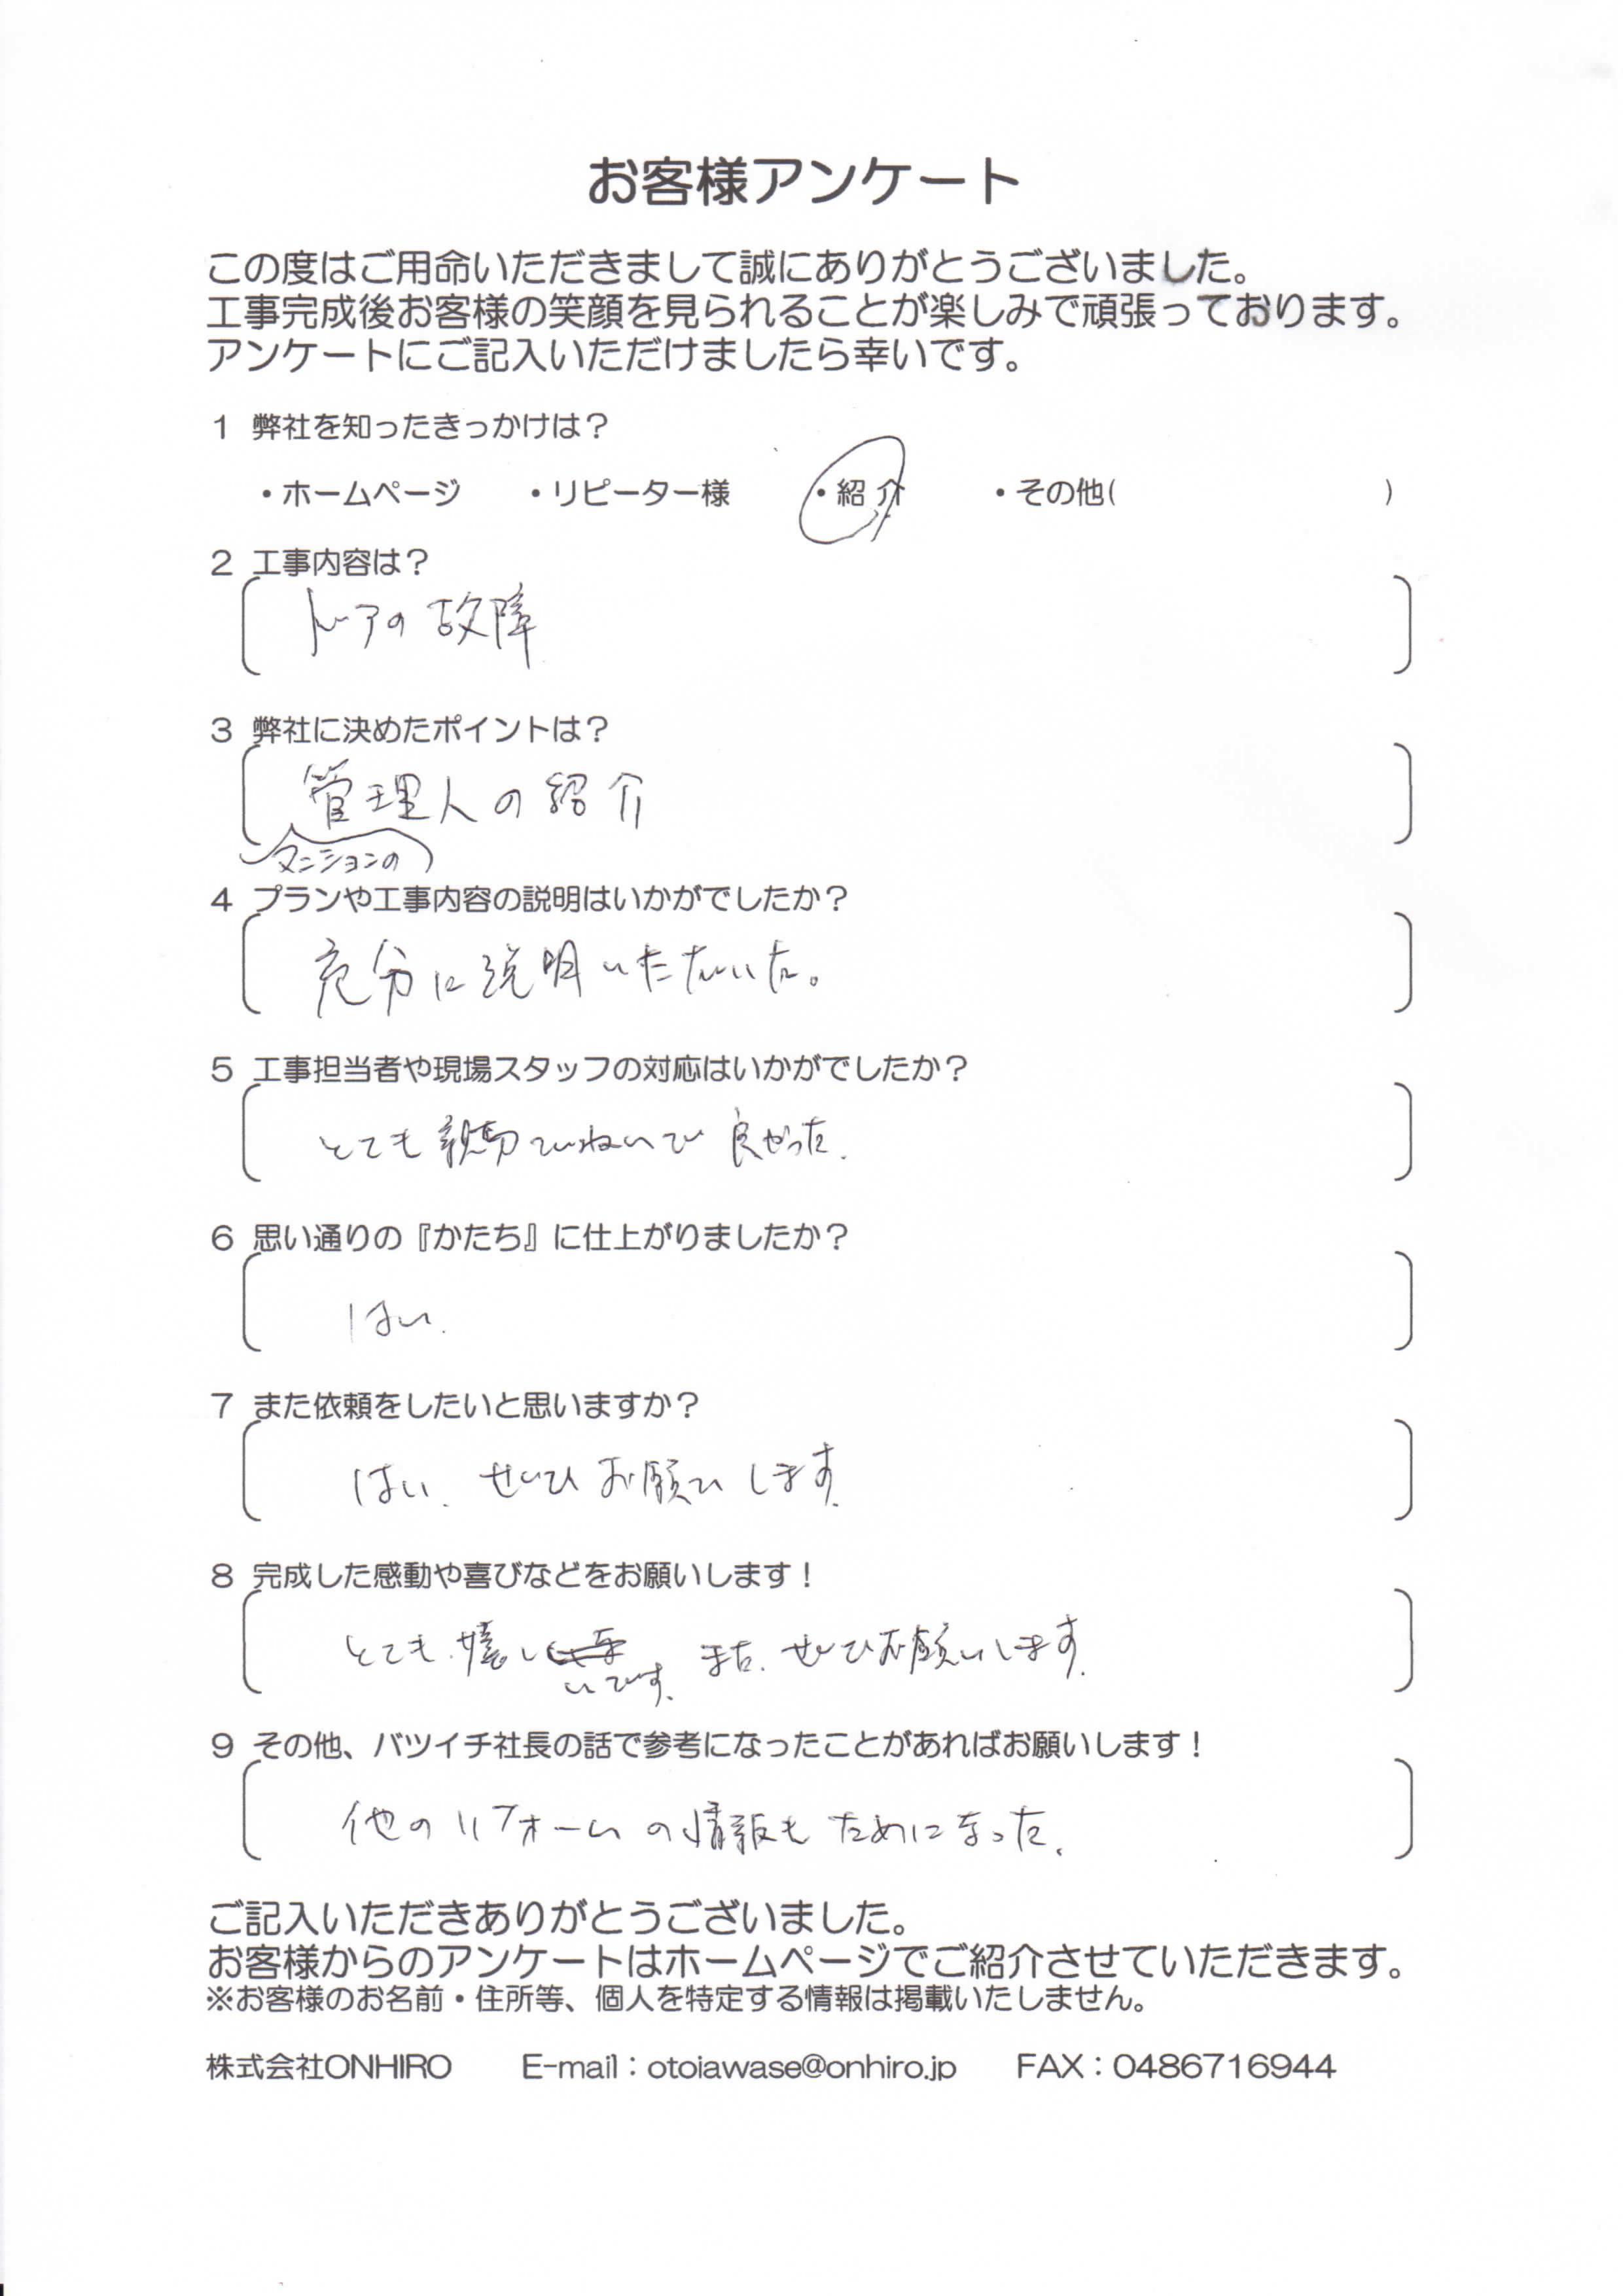 お客様アンケート
この度はご用命いただきまして誠にありがとうございました。
工事完成後お客様の笑顔を見られることが楽しみで頑張っております。
アンケートにご記入いただけましたら幸いです。
1 弊社を知ったきっかけは？
・ホームページ ・リピーター様 ・紹介 ・その他( )
2 工事内容は？
ドアの故障
3 弊社に決めたポイントは？
管理人の紹介
マンションの
4 プランや工事内容の説明はいかがでしたか？
充分に説明いただいた。
5 工事担当者や現場スタッフの対応はいかがでしたか？
とても親切ていねいで良かった.
6 思い通りの『かたち』に仕上がりましたか？
はい.
7 また依頼をしたいと思いますか？
はい. ぜひひお願いします.
8 完成した感動や喜びなどをお願いします！
とても嬉し また. ぜひひお願いします.
いです.
9 その他、バツイチ社長の話で参考になったことがあればお願いします！
他のリフォームの情報もためになった.
ご記入いただきありがとうございました。
お客様からのアンケートはホームページでご紹介させていただきます。
※お客様のお名前・住所等、個人を特定する情報は掲載いたしません。
株式会社ONHIRO E-mail：otoiawase@onhiro.jp FAX：0486716944